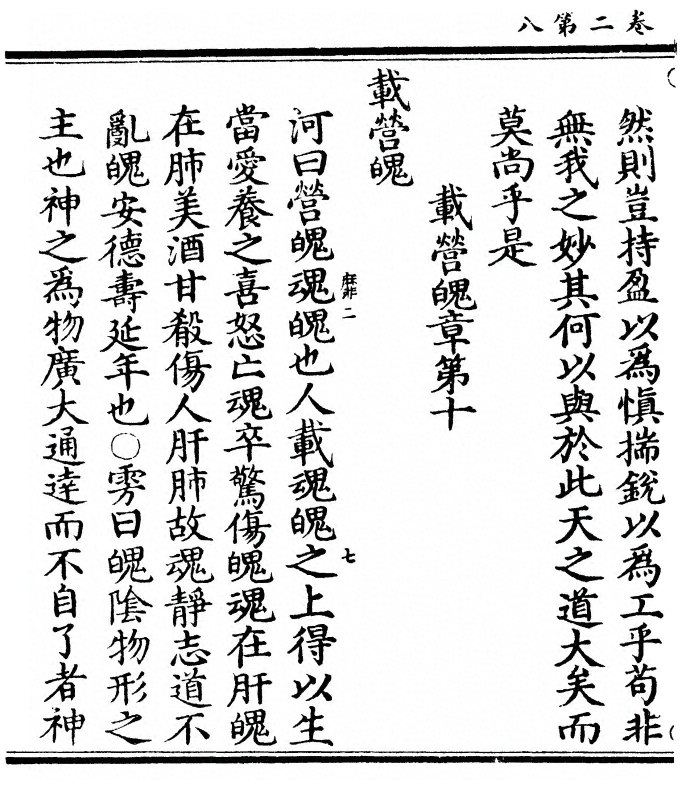 卷二第八
然則豈持盈以爲愼揣銳以爲工乎苟非
無我之妙其何以與於此天之道大矣而
莫尚乎是
載營魄章第十
載營魄
河曰營魄魂魄也人載魂魄之上得以生
當愛養之喜怒亡魂卒驚傷魄魂在肝魄
在肺美酒甘殽傷人肝肺故魂靜志道不
亂魄安德壽延年也○雱曰魄陰物形之
主也神之爲物廣大通達而不自了者神
二
七